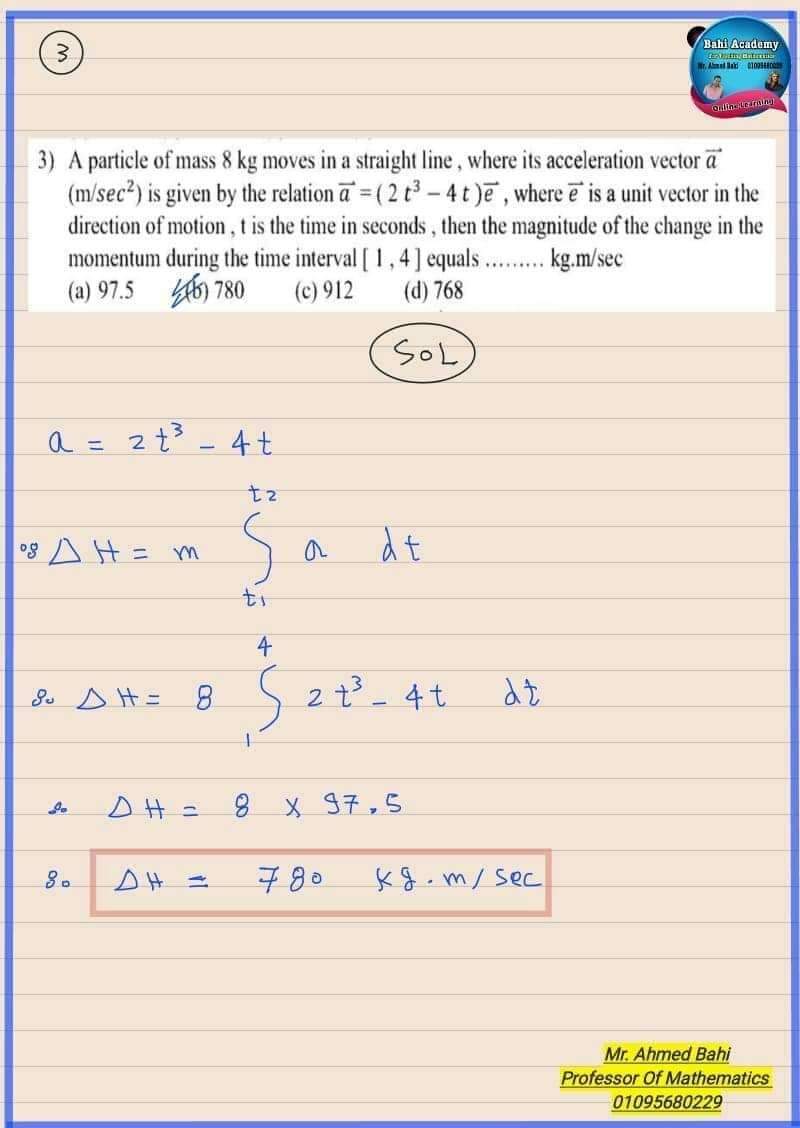 3
Bahi Academy
For Teaching Mathematics
Mr. Ahmed Bahi 01095680229
Online Learning
3) A particle of mass 8 kg moves in a straight line , where its acceleration vector a⃗
(m/sec²) is given by the relation a⃗ = ( 2 t³ – 4 t ) e⃗ , where e⃗ is a unit vector in the
direction of motion , t is the time in seconds , then the magnitude of the change in the
momentum during the time interval [ 1 , 4 ] equals ......... kg.m/sec
(a) 97.5 (b) 780 (c) 912 (d) 768
SOL
a = 2t³ - 4t
∵ Δ H = m ∫ₜ₁ᵗ² a dt
∴ Δ H = 8 ∫₁⁴ 2t³ - 4t dt
∴ Δ H = 8 × 97.5
∴ Δ H = 780 kg.m/sec
Mr. Ahmed Bahi
Professor Of Mathematics
01095680229